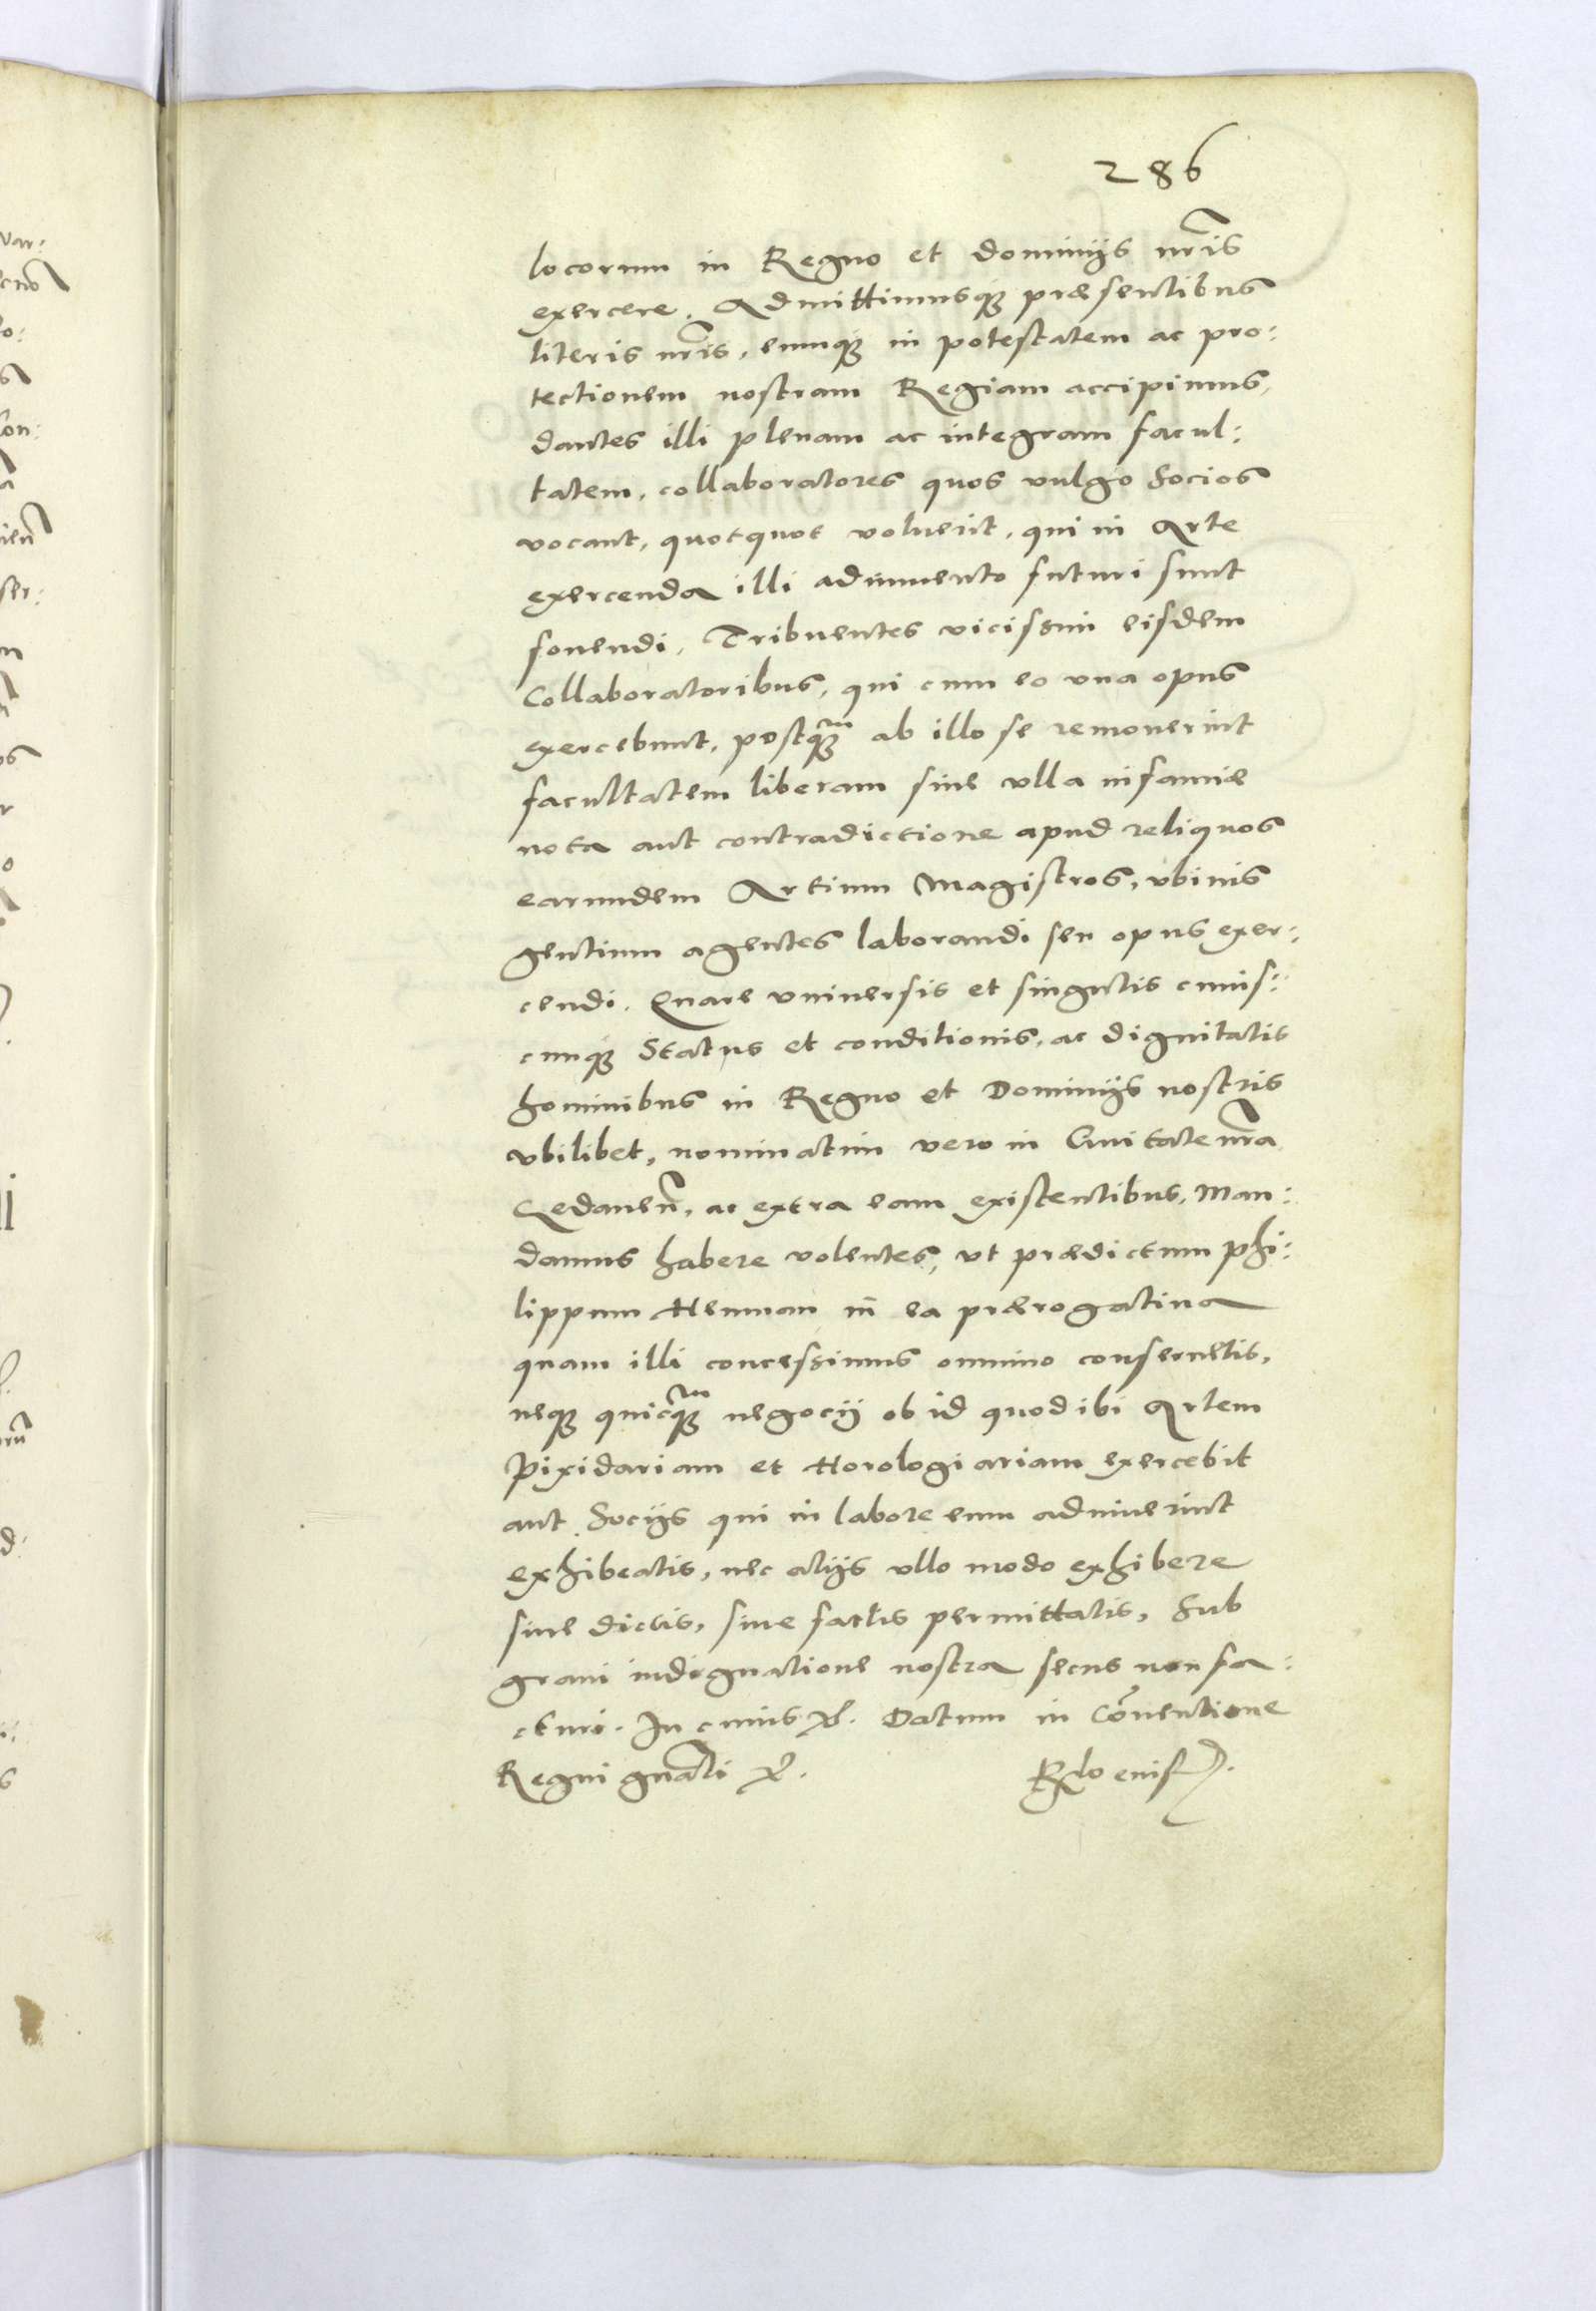 286
locorum in Regno et dominijs nr̃is
exercere. Admittimusq₃ præsentibus
literis nr̃is, eumq₃ in potestatem ac pro:
tectionem nostram Regiam accipimus,
dantes illi plenam ac integram facul:
tatem, collaboratores quos vulgo Socios
vocant, quotquot voluerit, qui in Arte
exercenda illi adiumento futuri sunt
fouendi, Tribuentes vicissim eisdem
Collaboratoribus, qui cum eo vna opus
exercebunt, postq₃m ab illo se remouerint
facultatem liberam sine vlla infamiæ
nota aut contradictione apud reliquos
earundem Artium Magistros, vbiuis
gentium agentes laborandi seu opus exer:
cendi. Quare vniuersis et singulis cuius:
cunq₃ Status et conditionis, ac dignitatis
hominibus in Regno et Dominijs nostris
vbilibet, nominatim vero in Ciuitate nr̃a
Gedaneñ, ac extra eam existentibus, Man:
damus habere volentes, vt prædictum Phi:
lippum Henman in ea prærogatiua
quam illi concessimus omnino conseruetis,
neq₃ quicq₃m negocij ob id quod ibi Artem
Pixidariam et Horologiariam exercebit
aut Socijs qui in labore eum adiuuerint
exhibeatis, nec alijs vllo modo exhibere
siue dictis, siue factis permittatis, Sub
graui indignatione nostra secus non fa:
cturi. In cuius &c. Datum in Cõuentione
Regni gñali &c.